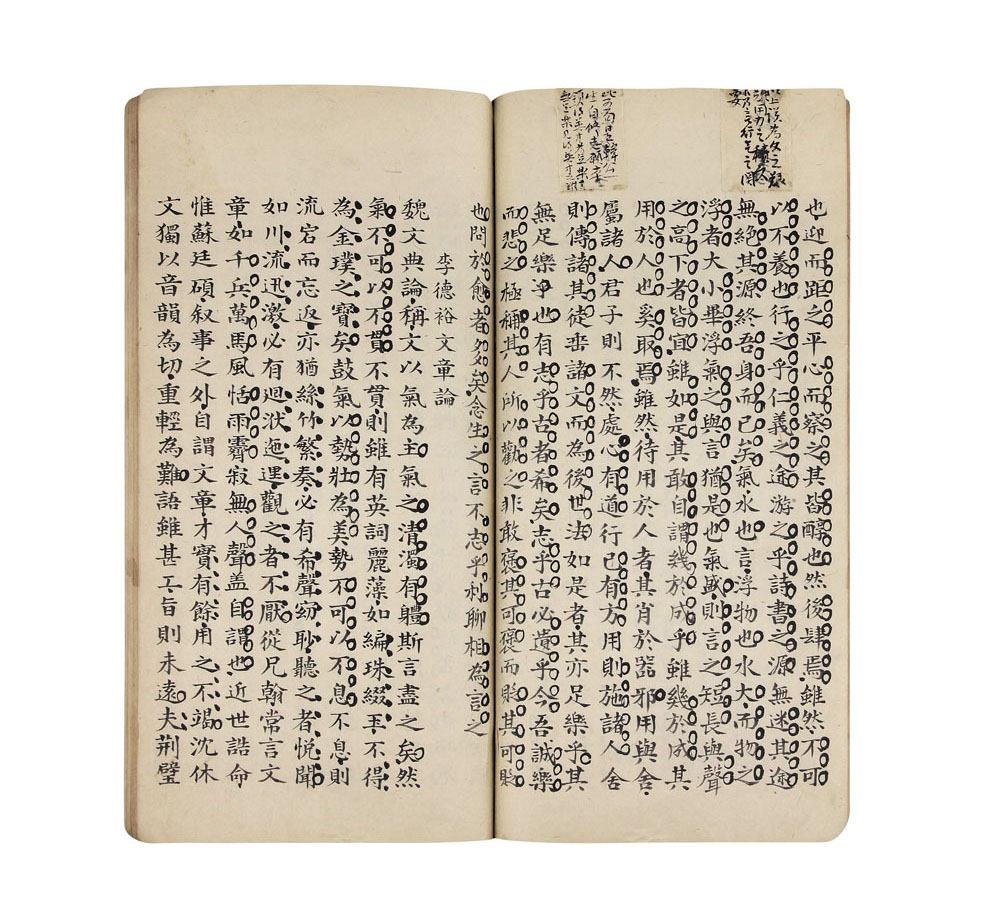 也迎而距之平心而察之其皆醇也然後肆焉雖然不可
以不養也行之乎仁義之途游之乎詩書之源無迷其途
無絕其源終吾身而已矣氣水也言浮物也水大而物之
浮者大小畢浮氣之與言猶是也氣盛則言之短長與聲
之高下者皆宜雖如是其敢自謂幾於成乎雖幾於成其
用於人也奚取焉雖然待用於人者其肖於器邪用與舍
屬諸人君子則不然處心有道行己有方用則施諸人舍
則傳諸其徒垂諸文而為後世法如是者其亦足樂乎其
無足樂乎也有志乎古者希矣志乎古必遺乎今吾誠樂
而悲之極稱其人所以勸之非敢褒其可褒而貶其可貶
也問於愈者多矣念生之言不志乎利聊相為言之
李德裕文章論
魏文典論稱文以氣為主氣之清濁有體斯言盡之矣然
氣不可以不貫不貫則雖有英詞麗藻如編珠綴玉不得
為金璞之寶矣鼓氣以勢壯為美勢不可以不息不息則
流宕而忘返亦猶絲竹繁奏必有希聲窈眇聽之者悅聞
如川流迅激必有迴洑逶迤觀之者不厭從兄翰常言文
章如千兵萬馬風恬雨霽寂無人聲蓋自謂也近世誥命
惟蘇廷碩叙事之外自謂文章才實有餘用之不竭沈休
文獨以音韻為切重輕為難語雖甚工旨則未遠夫荊璧